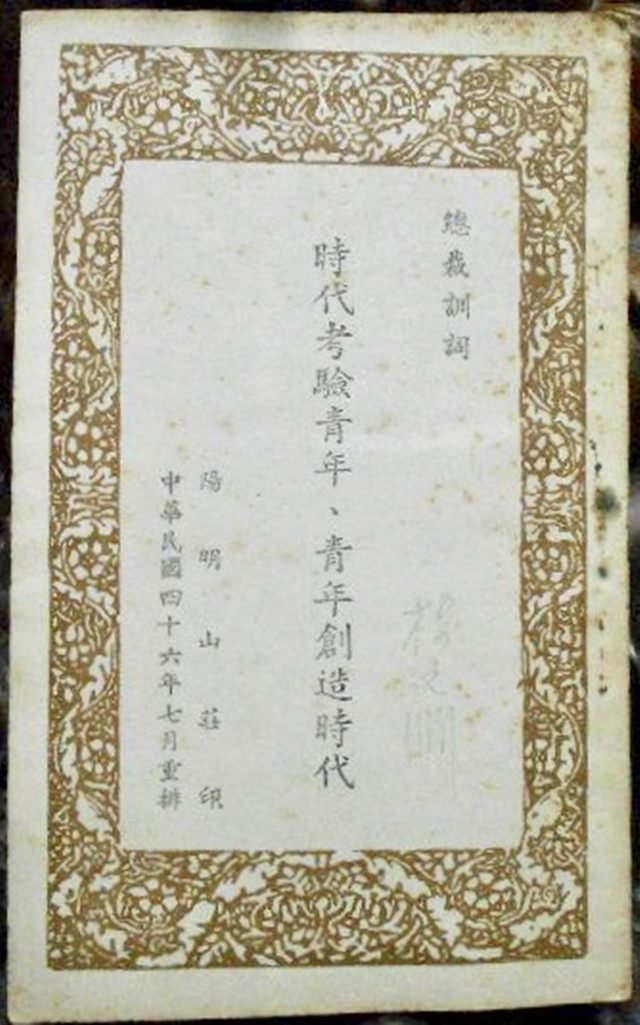 總裁訓詞
時代考驗青年、青年創造時代
陽明山莊印
中華民國四十六年七月重排